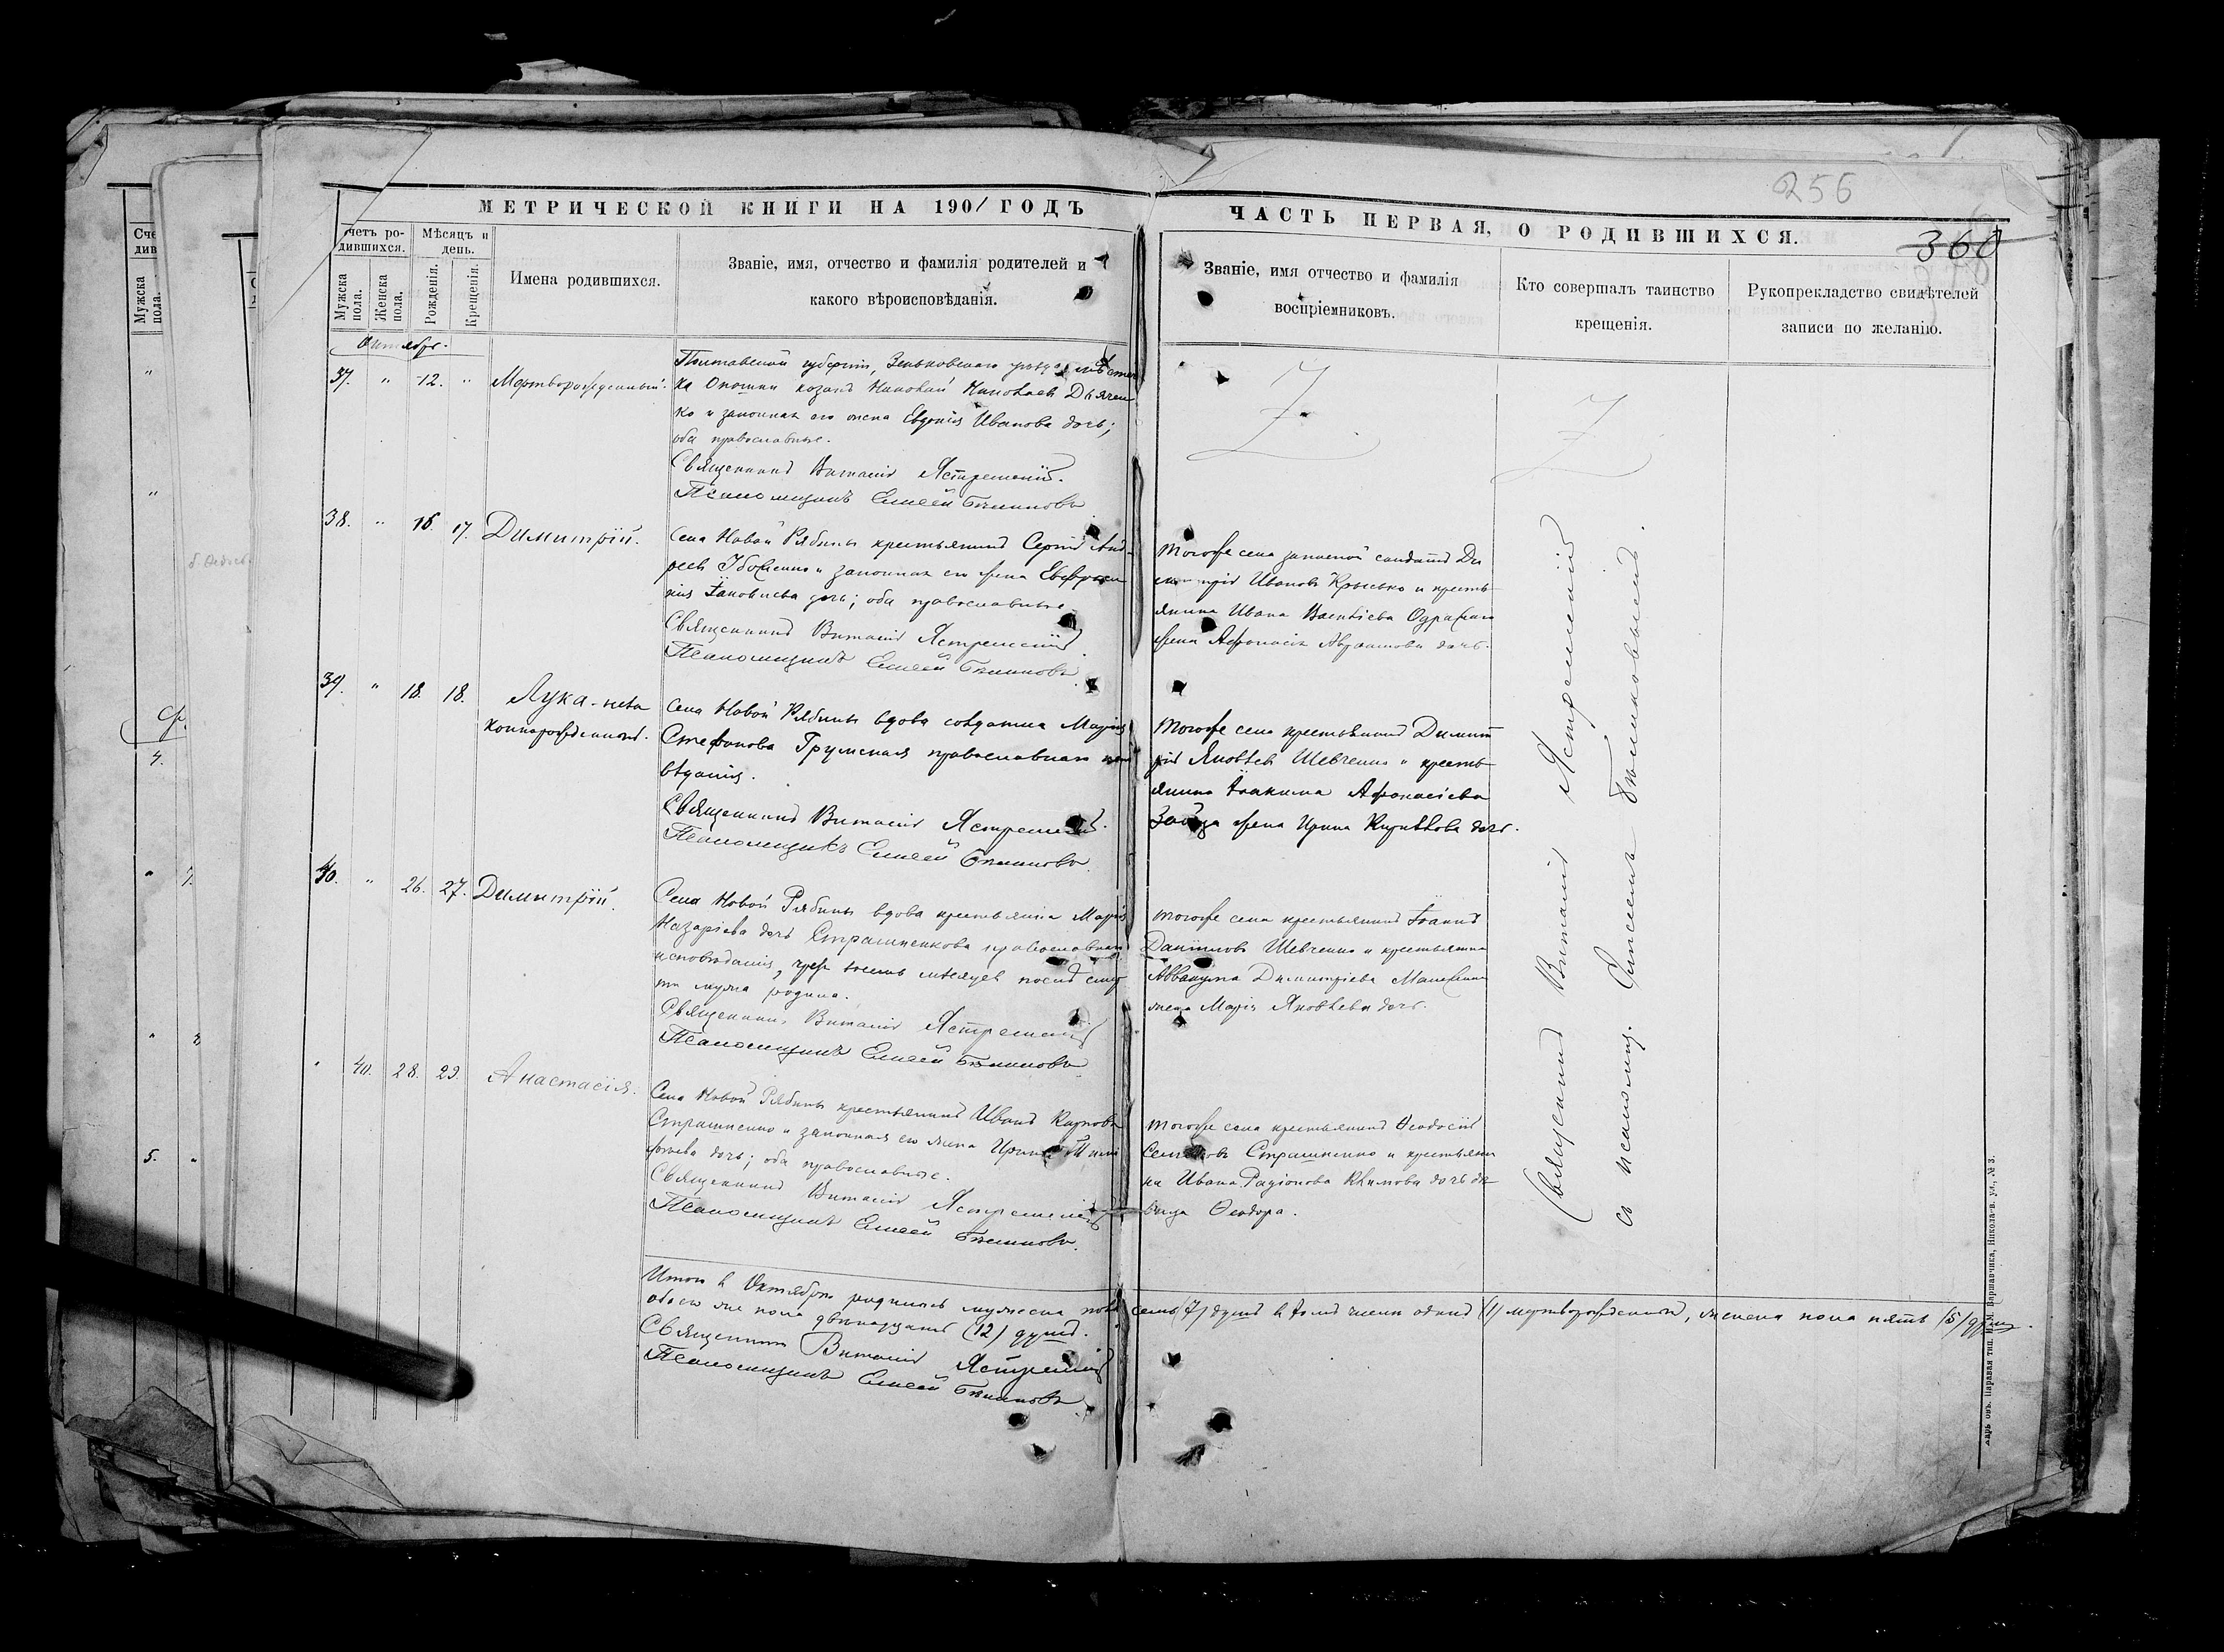 256
МЕТРИЧЕСКОЙ КНИГИ НА 1901 ГОДЪ
ЧАСТЬ ПЕРВАЯ, О РОДИВШИХСЯ.
360
Счетъ ро-
дившихся.
Мѣсяцъ и
день.
Мужска
пола.
Женска
пола.
Рожденія.
Крещенія.
Имена родившихся.
Званіе, имя, отчество и фамилія родителей и
какого вѣроисповѣданія.
Званіе, имя отчество и фамилія
воспріемниковъ.
Кто совершалъ таинство
крещенія.
Рукоприкладство свидѣтелей
записи по желанію.
Октябрь.
37. " 12. " Мертворожденный.
Полтавской губерніи, Зеньковскаго уѣзда мѣстеч
ка Опошни козакъ Николай Николаевъ Дьячен
ко и законная его жена Евдокія Иванова дочь;
оба православные.
Священникъ Виталій Ястремскій.
Псаломщикъ Елисей Бѣликовъ
38. " 16. 17. Димитрій.
Села Новой Рябины крестьянинъ Сергій Анд
реевъ и законная его жена Евфроси
нія Іаковлева дочь; оба православные
Священникъ Виталій Ястремскій
Псаломщикъ Елисей Бѣликовъ
Тогоже села запасной солдатъ Ди
митрій Ивановъ Крысько и кресть
янина Ивана Василіева
жена Афанасія Авраамова дочь.
39. " 18. 18. Лука - неза
коннорожденный.
Села Новой Рябины вдова солдатка Марія
Стефанова православнаго испо
вѣданія.
Священникъ Виталій Ястремскій.
Псаломщикъ Елисей Бѣликовъ.
Тогоже села крестьянинъ Димит
рій Яковлевъ Шевченко и кресть
янина Іоакима Афанасіева
жена Ирина Кириллова дочь.
40. " 26. 27. Димитрій.
Села Новой Рябины вдова крестьянка Марія
Назаріева дочь Страшненкова православнаго
исповѣданія, чрезъ восемь мѣсяцевъ послѣ смер
ти мужа родила.
Священникъ Виталій Ястремскій
Псаломщикъ Елисей Бѣликовъ
Тогоже села крестьянинъ Іоаннъ
Даніиловъ Шевченко и крестьянина
Аввакума Димитріева
жена Марія Яковлева дочь.
" 40. 28. 29. Анастасія.
Села Новой Рябины крестьянинъ Иванъ Карповъ
Страшненко и законная его жена Ирина Тимо
фѣева дочь; оба православные.
Священникъ Виталій Ястремскій
Псаломщикъ Елисей Бѣликовъ.
Тогоже села крестьянинъ Ѳеодосій
Страшненко и крестьяни
на Ивана Радіонова Климова дочь дѣ
вица Ѳеодора.
Священникъ Виталій Ястремскій
съ псаломщ. Елисеемъ Бѣликовымъ.
Итого въ Октябрѣ родилось мужеска пола семь (7) душъ въ томъ числѣ одинъ (1) мертворожденный, женска пола пять (5) душъ.
обоего же пола двѣнадцать (12) душъ.
Священникъ Виталій Ястремскій
Псаломщикъ Елисей Бѣликовъ.